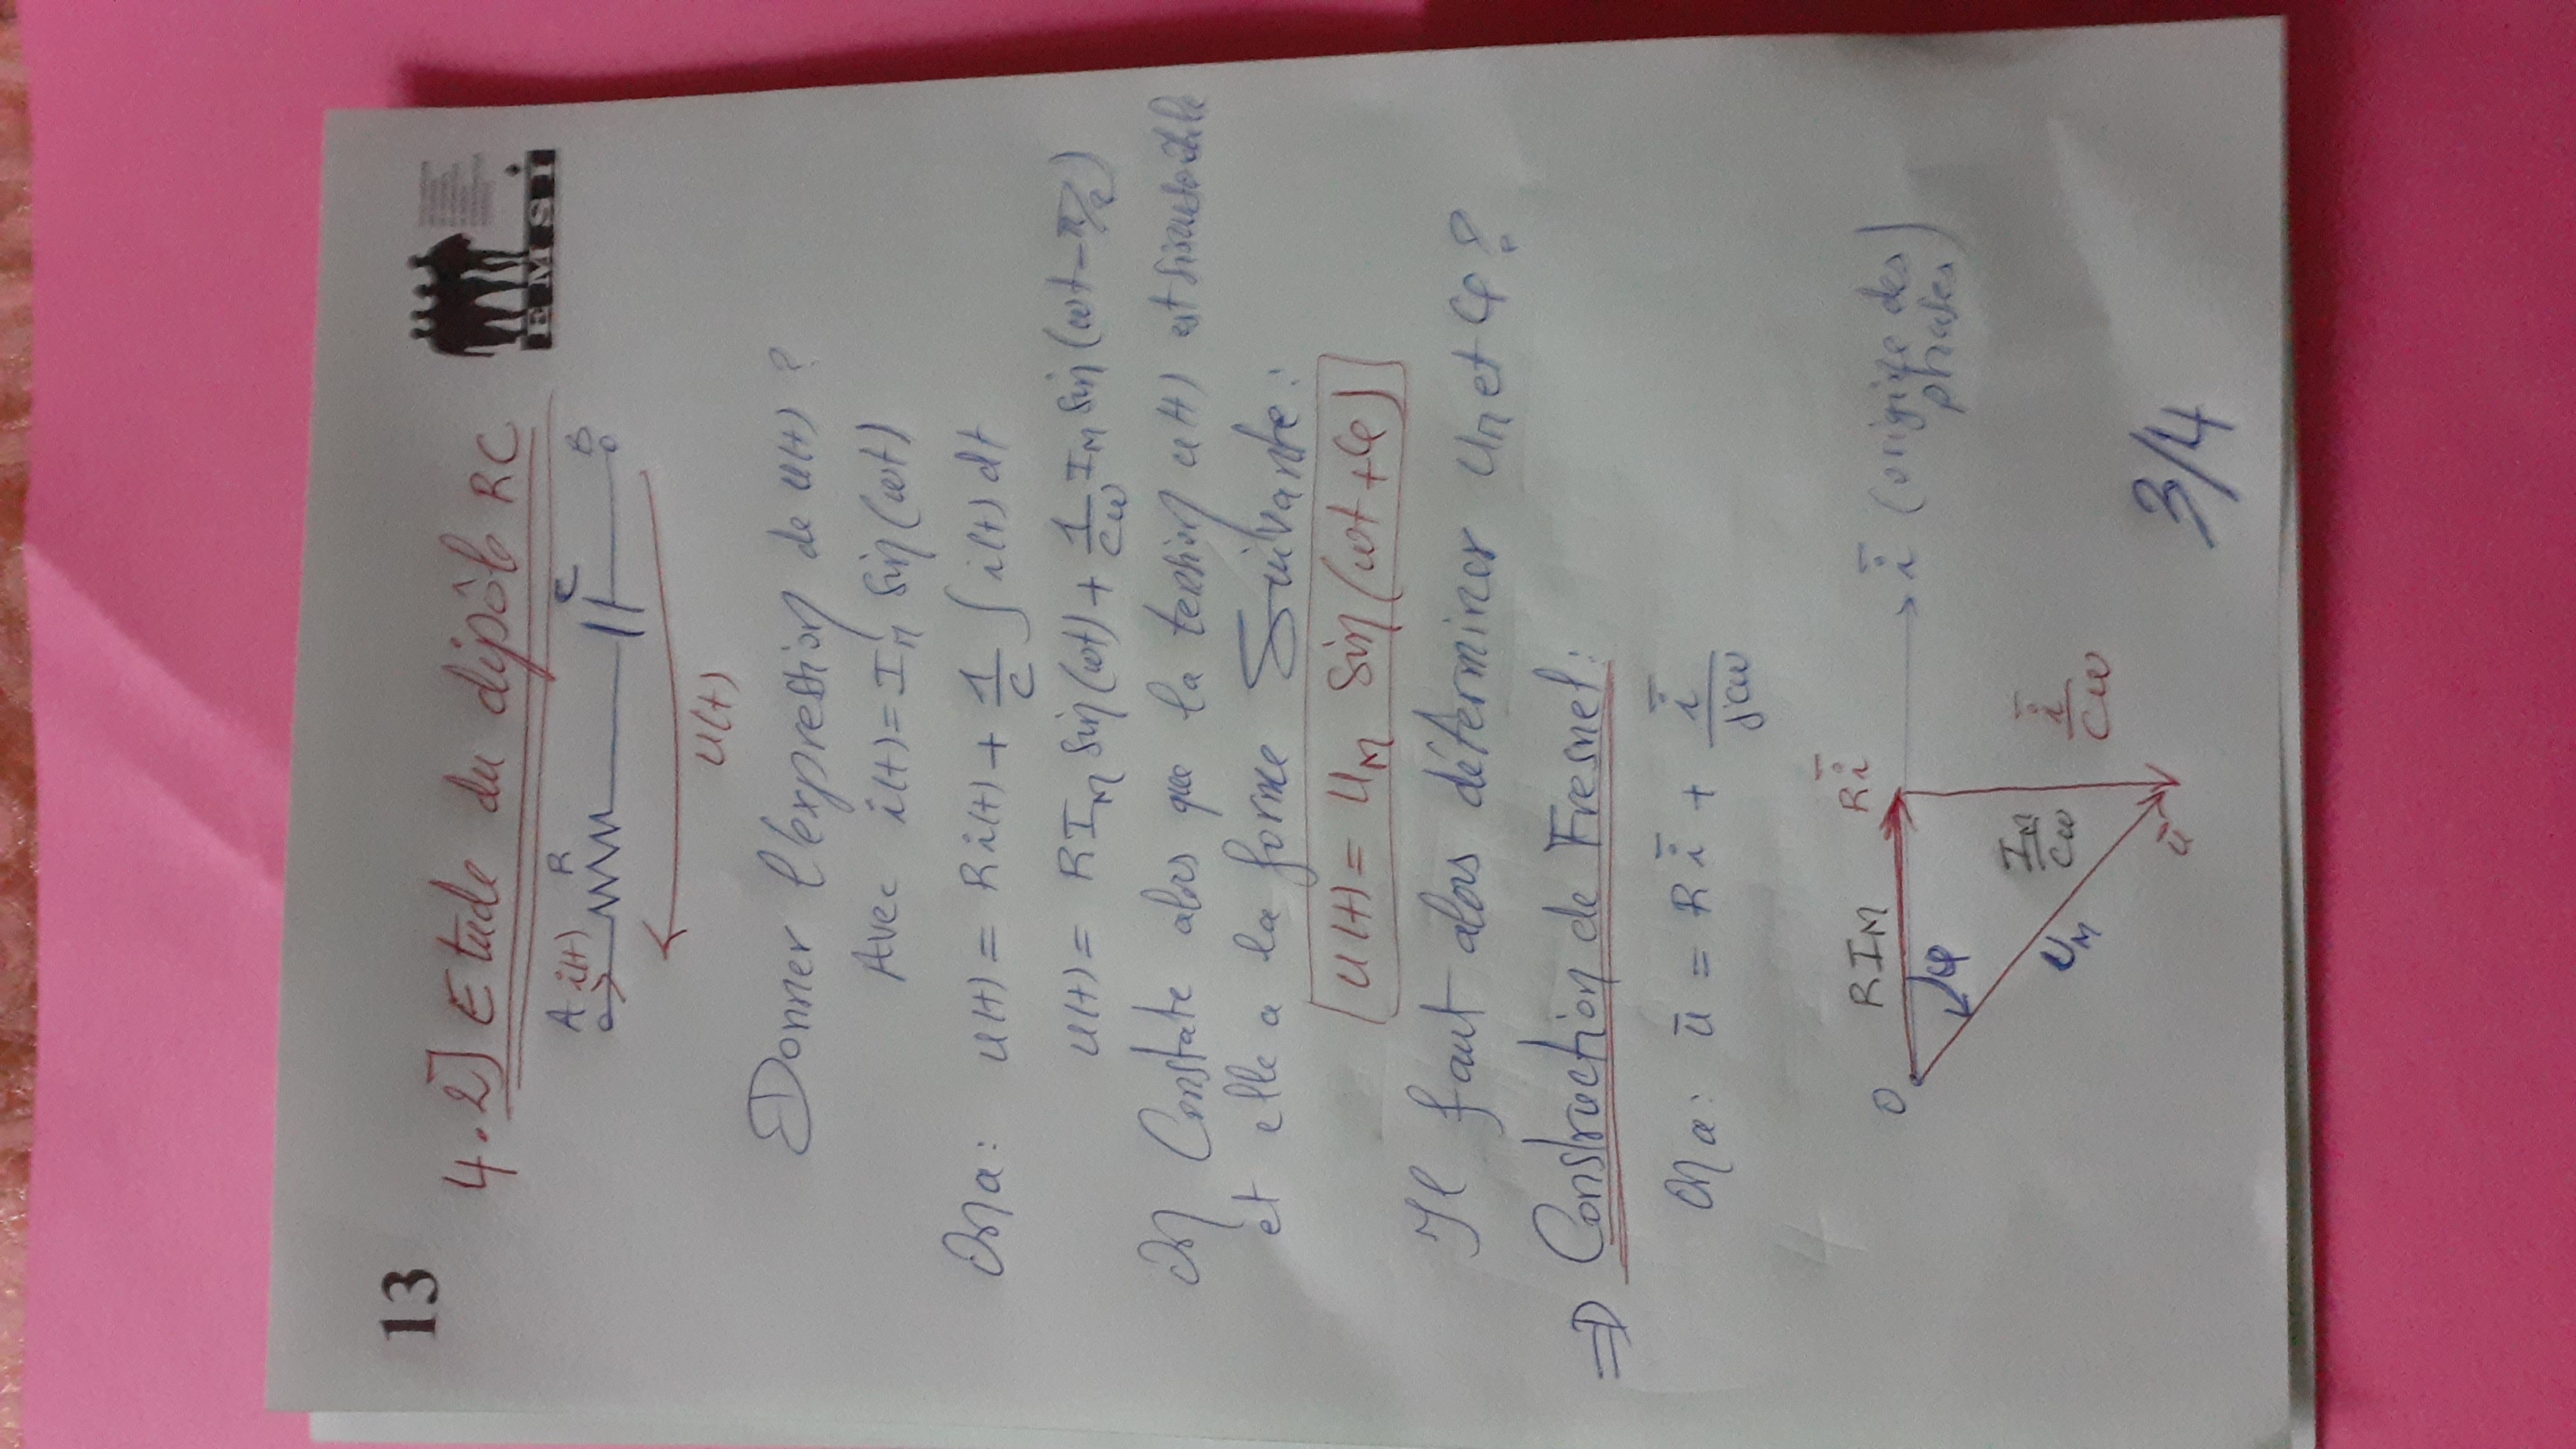 13
4.2] Etude du dipôle RC
EMSI
A i(t) R C B
u(t)
Donner l'expression de u(t) ?
Avec i(t) = I_M sin(ωt)
On a : u(t) = R i(t) + 1/C ∫ i(t) dt
u(t) = R I_M sin(ωt) + 1/(Cω) I_M sin(ωt - π/2)
On Constate alors que la tension u(t) est sinusoïdale
et elle a la forme Suivante :
u(t) = U_M sin(ωt + φ)
Il faut alors déterminer U_M et φ ?
⇒ Construction de Fresnel :
On a : ū = R ī + ī/(jCω)
O R I_M R ī ī (origine des
phases)
φ
U_M I_M/(Cω) ī/(Cω)
ū
3/4